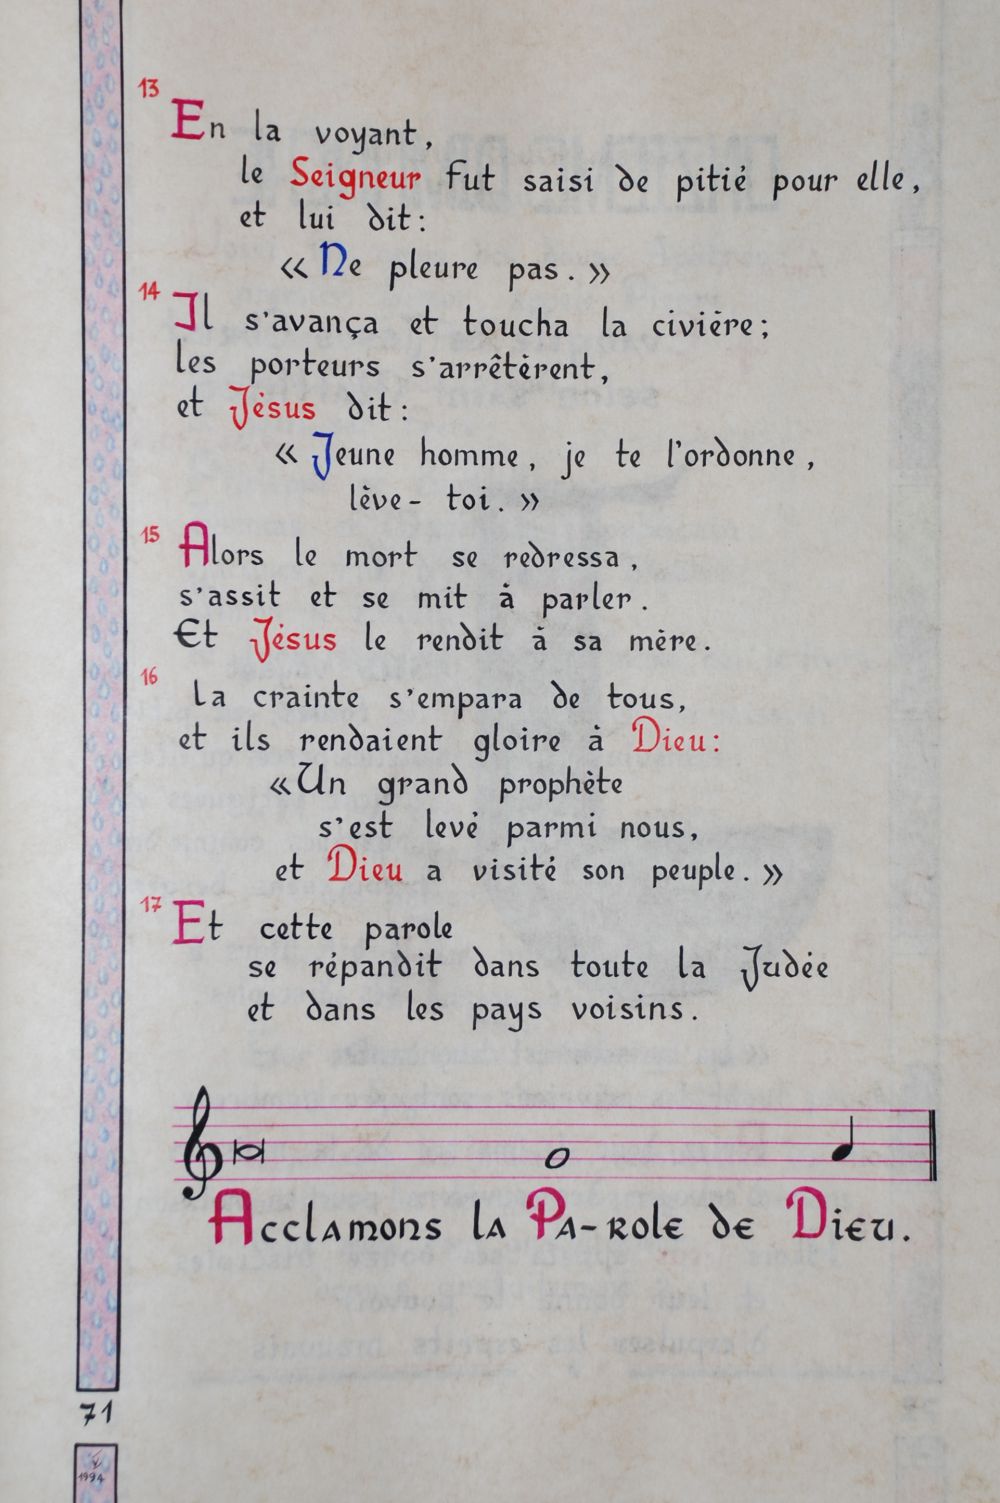 13
En la voyant,
le Seigneur fut saisi de pitié pour elle,
et lui dit:
« Ne pleure pas. »
14
Il s'avança et toucha la civière;
les porteurs s'arrêtèrent,
et Jésus dit:
« Jeune homme, je te l'ordonne,
lève-toi. »
15
Alors le mort se redressa,
s'assit et se mit à parler.
Et Jésus le rendit à sa mère.
16
La crainte s'empara de tous,
et ils rendaient gloire à Dieu:
«Un grand prophète
s'est levé parmi nous,
et Dieu a visité son peuple. »
17
Et cette parole
se répandit dans toute la Judée
et dans les pays voisins.
Acclamons la Pa-role de Dieu.
71
1994